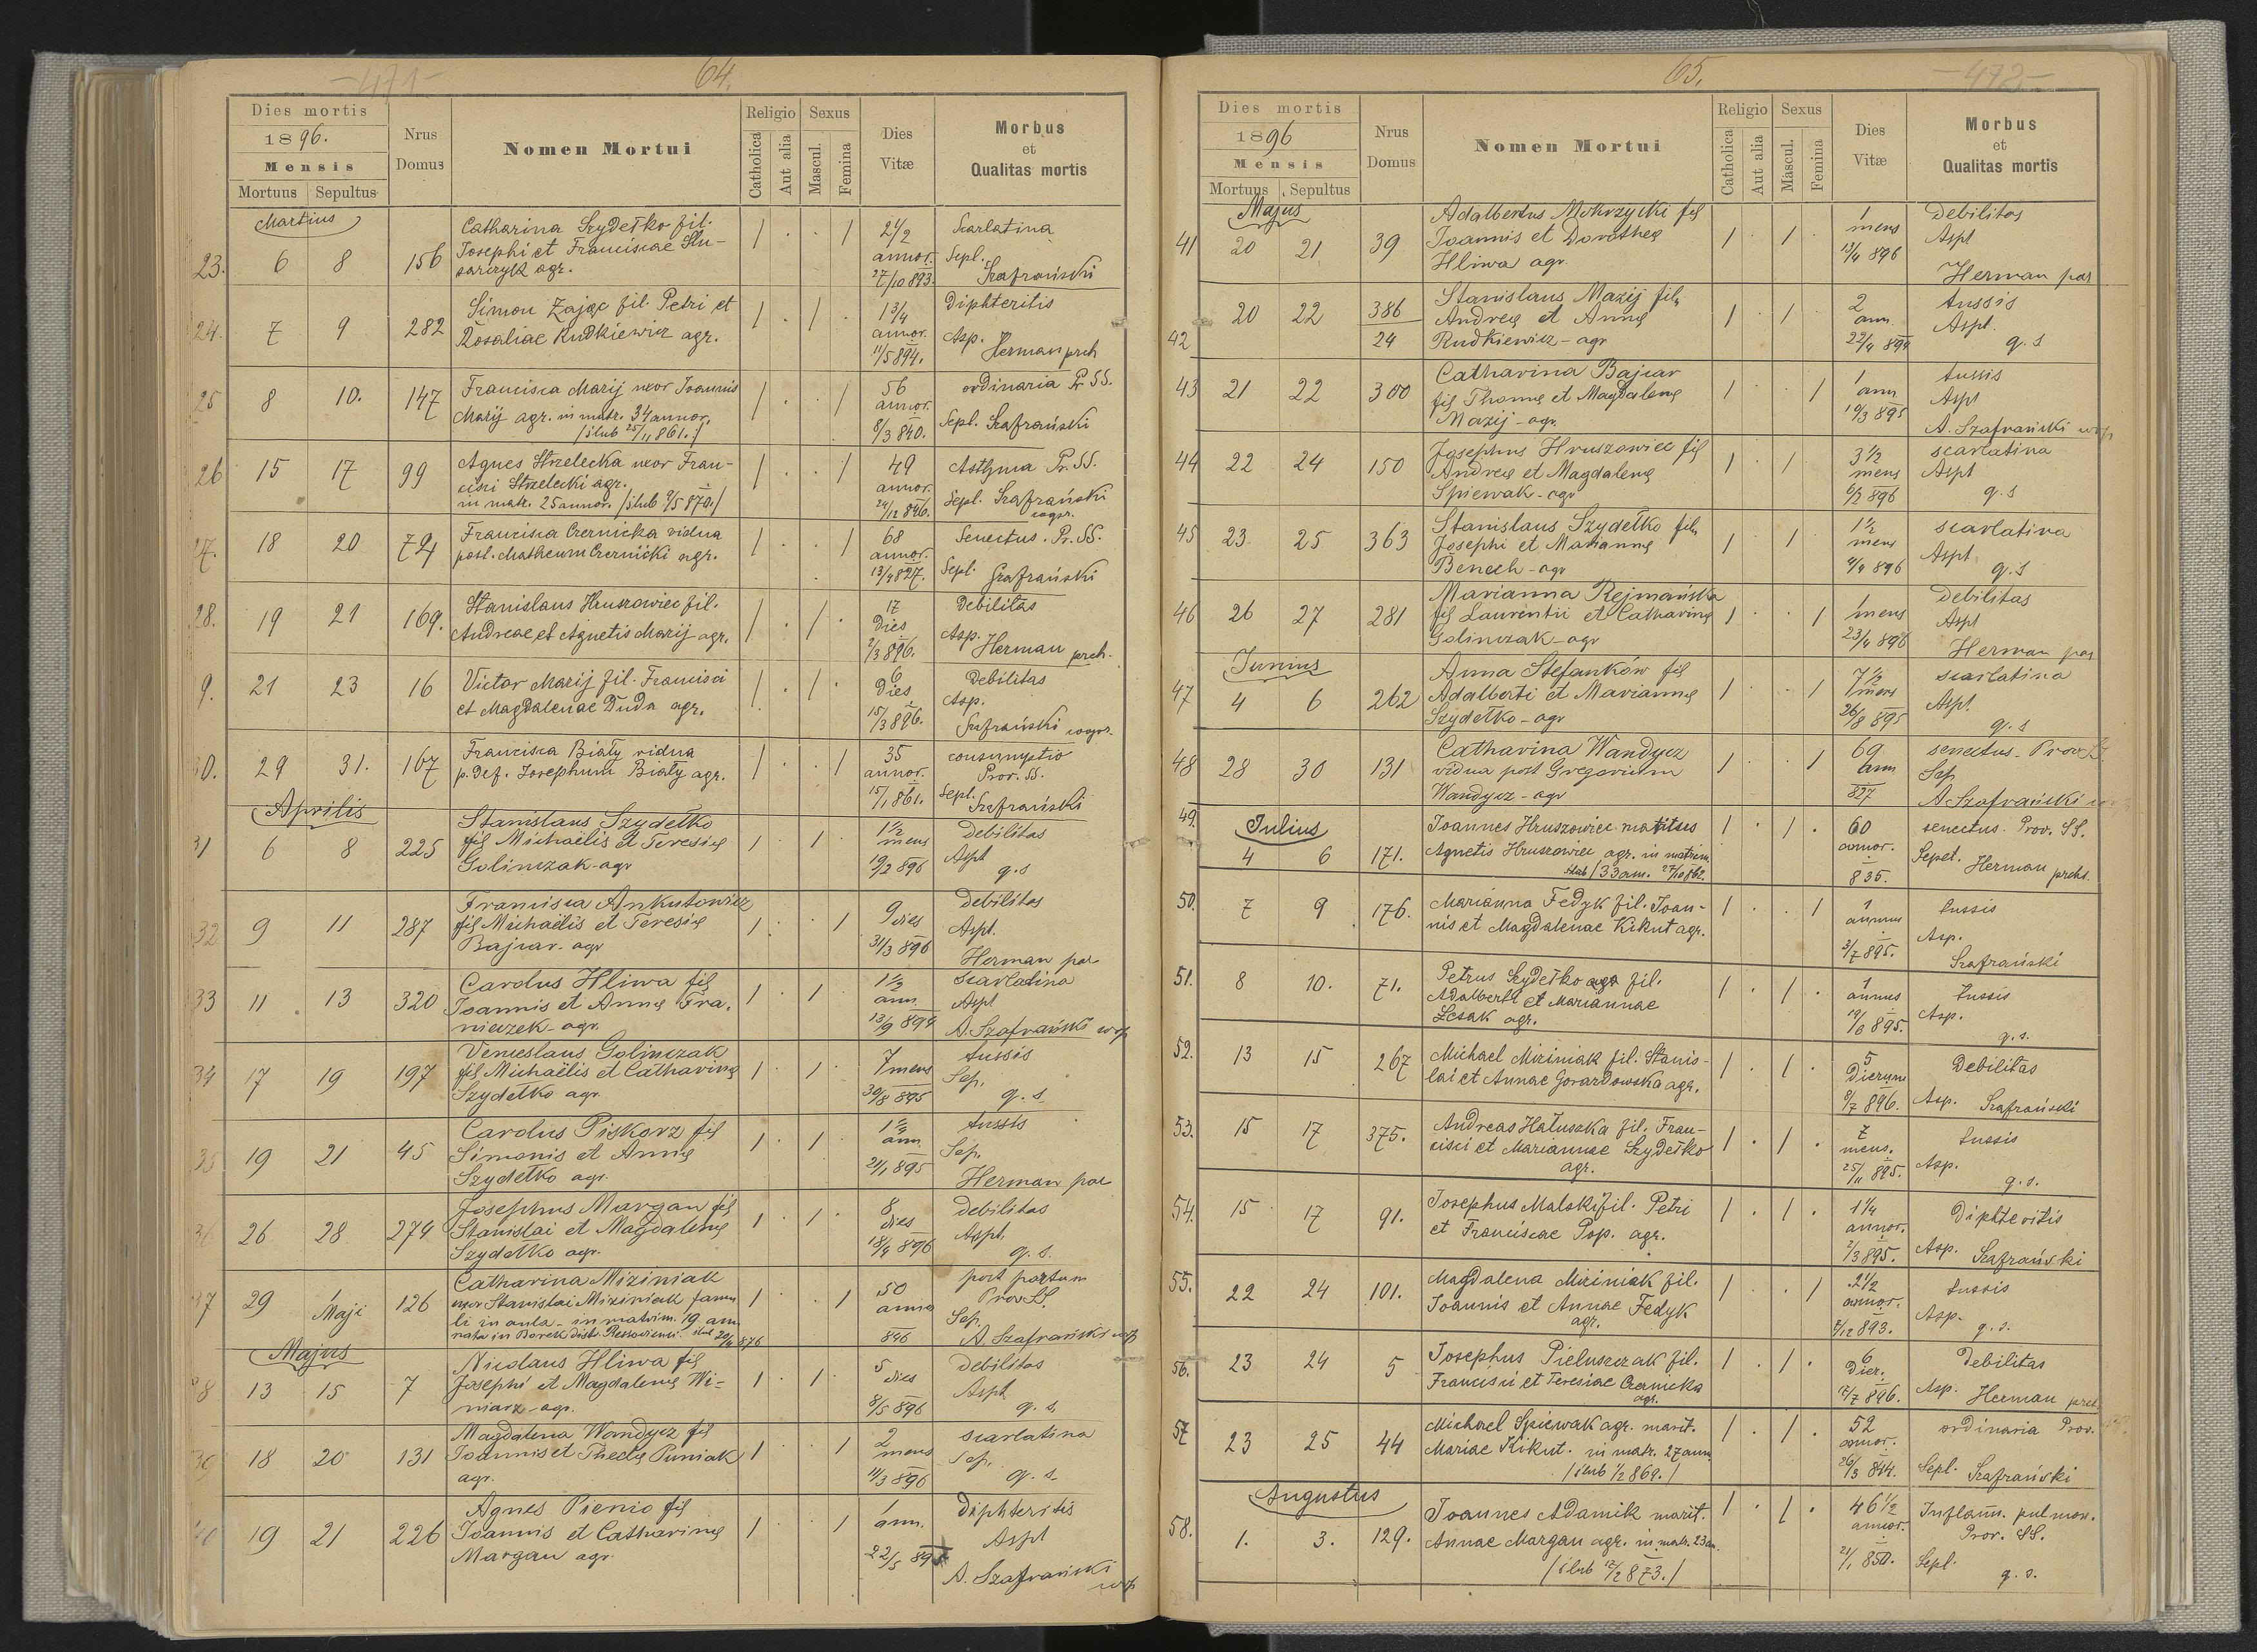 -471-
64.
Dies mortis
1896.
Mensis
Mortuus Sepultus
Nrus Domus
Nomen Mortui
Religio
Catholica
Aut alia
Sexus
Mascul.
Femina
Dies Vitæ
Morbus et Qualitas mortis
Martius
23. 6 8 156 Catharina Szydełko fil. 1 . . 1 2 1/2 Scarlatina
Josephi et Franciscae Slu- annor. Sepl.
sarczyk agr. 27/10 893. Szafrański
24. 7 9 282 Simon Zając fil. Petri et 1 . 1 . 1 3/4 Diphteritis
Rosaliae Rudkiewicz agr. annor. Asp.
11/5 894. Herman prch
25 8 10. 147 Francisca Mazij uxor Joannis 1 . . 1 56 ordinaria Pr. SS.
Mazij agr. in matr. 34 annor. annor.
/ślub 25/11 861./ 8/3 840. Sepl. Szafrański
26 15 17 99 Agnes Strzelecka uxor Fran- 1 . . 1 49 Asthma Pr. SS.
cisci Strzelecki agr. annor. Sepl. Szafrański
in matr. 25 annor. /ślub 9/5 870./ 24/12 846. coopr.
27. 18 20 74 Francisca Czernicka vidua 1 . . 1 68 Senectus. Pr. SS.
post. Matheum Czernicki agr. annor.
13/4 827. Sepl. Szafrański
28. 19 21 169. Stanislaus Hruszowiec fil. 1 . 1 . 17 Debilitas
Andreae et Agnetis Mazij agr. dies Asp.
2/3 896. Herman prch.
9. 21 23 16 Victor Mazij fil. Francisci 1 . 1 . 6 Debilitas
et Magdalenae Duda agr. dies Asp.
15/3 896. Szafrański coopr.
30. 29 31. 167 Francisca Biały vidua 1 . . 1 35 consumptio
p. def. Josephum Biały agr. annor. Prov. SS.
15/1 861. Sepl. Szafrański
Aprilis
31 6 8 225 Stanislaus Szydełko 1 . 1 1 1/2 Debilitas
filę Michaëlis et Teresię mens Aspt
Golinczak-agr 19/2 896 q.s
32 9 11 287 Francisca Ankutowicz 1 . . 1 9 dies Debilitas
filę Michaëlis et Teresię Aspt.
Bajcar-agr 31/3 896 Herman par
33 11 13 320 Carolus Hliwa filę 1 . 1 1 1/2 Scarlatina
Joannis et Annę Fra- ann Aspt
nieczek-agr. 13/9 894 A. Szafrański wsp
34 17 19 197 Venceslaus Golinczak 1 . 1 7 mens tussis
filę Michaëlis et Catharinę Sep.
Szydełko agr. 30/8 895 q.s
35 19 21 45 Carolus Piskorz filę 1 . 1 1 1/2 tussis
Simonis et Annę ann Sep.
Szydełko agr. 21/1 895 Herman par
36 26 28 274 Josephus Margan filę 1 . 1 8 Debilitas
Stanislai et Magdalenę dies Aspt.
Szydełko agr. 18/4 896 q.s.
37 29 1 Maji 126 Catharina Miziniak 1 . . 1 50 post partum
uxor Stanislai Miziniak famu anno Prov SS.
li in aula - in matrim. 19 ann Sep.
nata in Borek distr. Rzeszoviensi. ślub 20/4 876 846 A Szafrański wsp
Majus
38 13 15 7 Nicolaus Hliwa filę 1 . 1 5 Debilitas
Josephi et Magdalenę Wi- dies Aspt
niarz-agr. 8/5 896 q.s.
39 18 20 131 Magdalena Wandycz filę 1 . . 1 2 scarlatina
Joannis et Theclę Puniak mens Sep.
agr. 11/3 896 q.s.
40 19 21 226 Agnes Pienio filę 1 . . 1 1 Diphteritis
Joannis et Catharinę ann. Aspt
Margan agr. 22/5 895 A. Szafrański wsp
65.
-472-
Dies mortis
1896
Mensis
Mortuus Sepultus
Nrus Domus
Nomen Mortui
Religio
Catholica
Aut alia
Sexus
Mascul.
Femina
Dies Vitæ
Morbus et Qualitas mortis
Majus
41 20 21 39 Adalbertus Mokrzycki filę 1 . 1 . 1 Debilitas
Joannis et Dorotheę mens Aspt
Hliwa agr. 13/4 896 Herman par
42 20 22 386/24 Stanislaus Mazij filę 1 . 1 2 tussis
Andreę et Annę ann. Aspt.
Rudkiewicz-agr 22/4 894 q.s
43 21 22 300 Catharina Bajcar 1 . . 1 1 tussis
filę Thomę et Magdalenę ann Aspt
Mazij-agr. 10/3 895 A. Szafrański wsp
44 22 24 150 Josephus Hruszowiec filę 1 . 1 3 1/2 scarlatina
Andreę et Magdalenę mens Aspt
Spiewak-agr 6/2 896 q.s
45 23 25 363 Stanislaus Szydełko filę 1 . 1 1 1/2 scarlatina
Josephi et Mariannę mens Aspt
Benech-agr 4/4 896 q.s
46 26 27 281 Marianna Rejmańska 1 . . 1 1 mens Debilitas
filę Laurentii et Catharinę Aspt
Golinczak-agr 23/4 896 Herman par
Junius
47 4 6 262 Anna Stefanków filę 1 . . 1 7 1/2 scarlatina
Adalberti et Mariannę mens Aspt.
Szydełko-agr 26/8 895 q.s
48 28 30 131 Catharina Wandycz 1 . . 1 69 senectus - Prov SS.
vidua post Gregorium ann Sep
Wandycz-agr 827 A. Szafrański
Julius
49. 4 6 171. Joannes Hruszowiec maritus 1 . 1 . 60 senectus. Prov. SS.
Agnetis Hruszowiec agr. in matrim. annor. Sepet.
ślub /33 ann. 27/10 862. 835. Herman prchs.
50. 7 9 176. Marianna Fedyk fil. Joan- 1 . . 1 1 tussis
nis et Magdalenae Kikut agr. annus Asp.
3/7 895. Szafrański
51. 8 10. 71. Petrus Szydełko agr fil. 1 . 1 . 1 tussis
Adalberti et Mariannae annus Asp.
Lesak agr. 19/6 895. q.s.
52. 13 15 267 Michael Miziniak fil. Stanis- 1 . 1 . 5 Debilitas
lai et Annae Gorardowska agr. dierum
8/7 896. Asp. Szafrański
53. 15 17 375. Andreas Hałuszka fil. Fran- 1 . 1 . 7 tussis
cisci et Mariannae Szydełko mens. Asp.
agr. 25/11 895. q.s.
54. 15 17 91. Josephus Malski fil. Petri 1 . 1 . 1 1/4 Diphteritis
et Franciscae Pop. agr. annor.
2/3 895. Asp. Szafrański
55. 22 24 101. Magdalena Miziniak fil. 1 . . 1 2 1/2 tussis
Joannis et Annae Fedyk annor. Asp.
agr. 7/12 893. q.s.
56. 23 24 5 Josephus Pieluszczak fil. 1 . 1 . 6 Debilitas
Francisci et Teresiae Czernicka dier.
agr. 17/7 896. Asp. Herman prch
57 23 25 44 Michael Spiewak agr. marit. 1 . 1 . 52 ordinaria Prov.
Mariae Kikut. in matr. 27 ann. annor.
/ślub 1/2 869./ 26/3 844. Sepl. Szafrański
Augustus
58. 1. 3. 129. Joannes Adamik marit. 1 . 1 . 46 1/2 Inflam. pulmon.
Annae Margan agr. in matr. 23 an. annor. Prov. SS.
/ślub 12/2 873./ 21/1 850. Sepl. q.s.